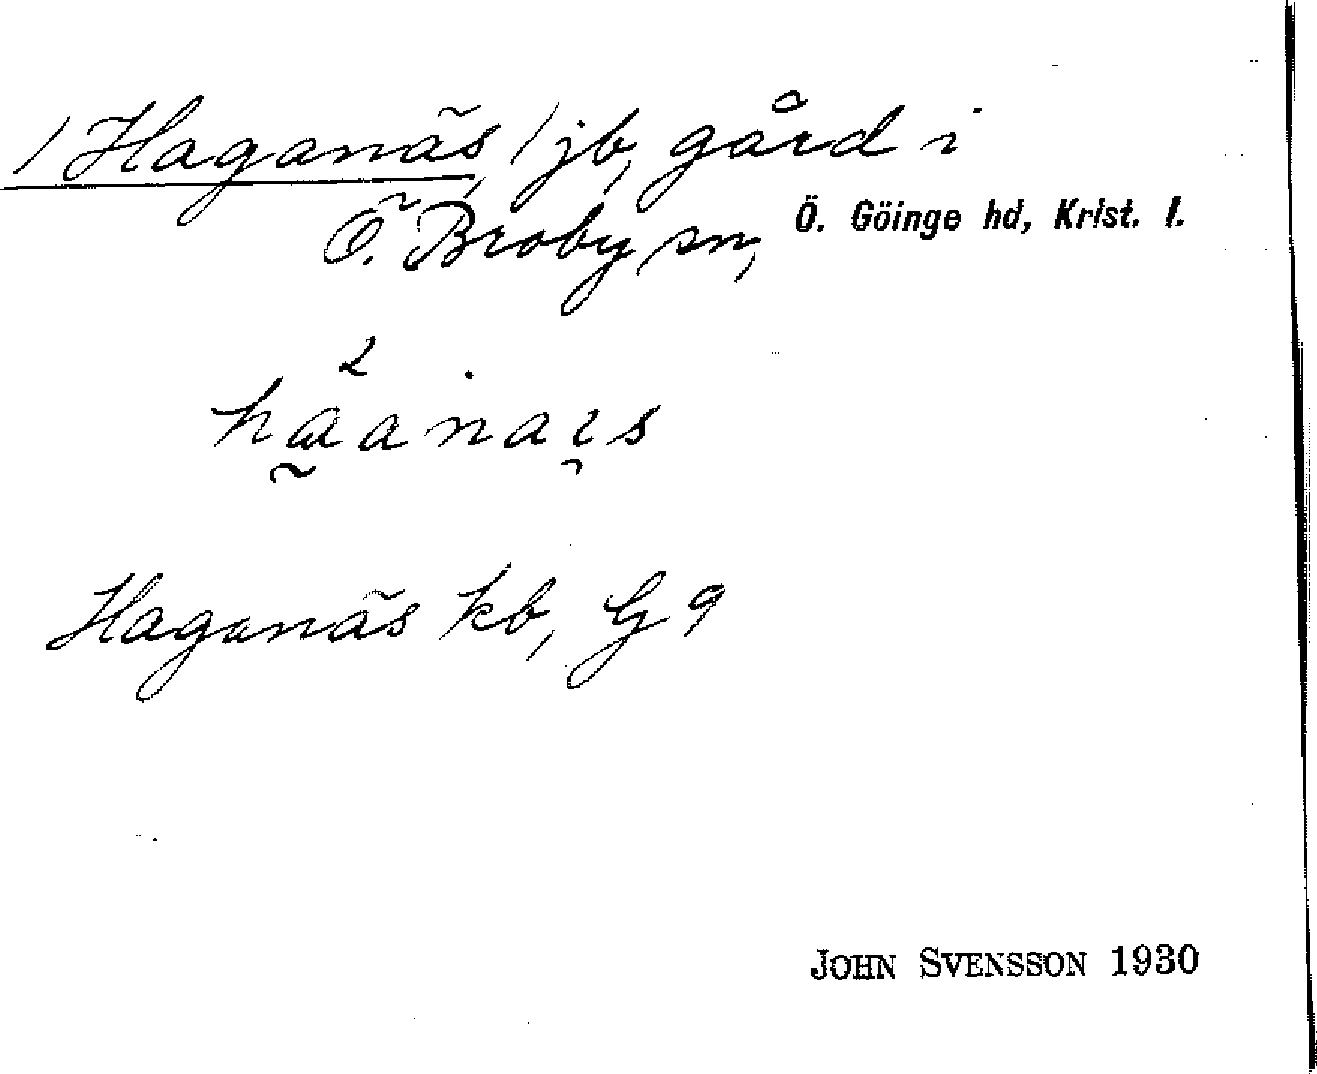 /Haganäs/ jb, gård i
Ö. Broby sn, Ö. Göinge hd, Krist. l.
Haganäs kb, G 9
JOHN SVENSSON 1930